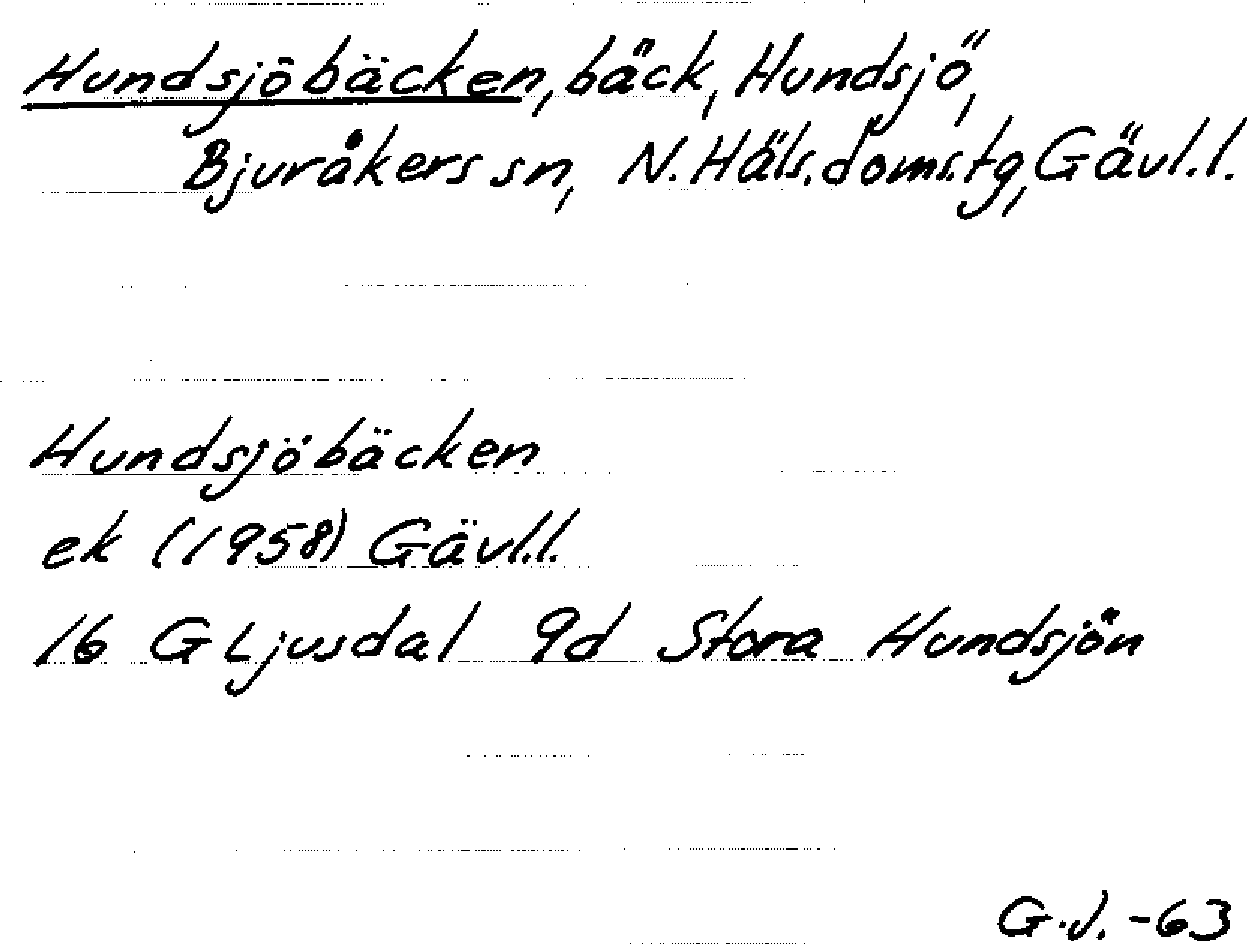 Hundsjöbäcken, bäck, Hundsjö,
Bjuråkers sn, N. Häls. doms. tg, Gävl. l.
Hundsjöbäcken
ek (1958) Gävl.l.
16 G Ljusdal 9d Stora Hundsjön
G.J. -63